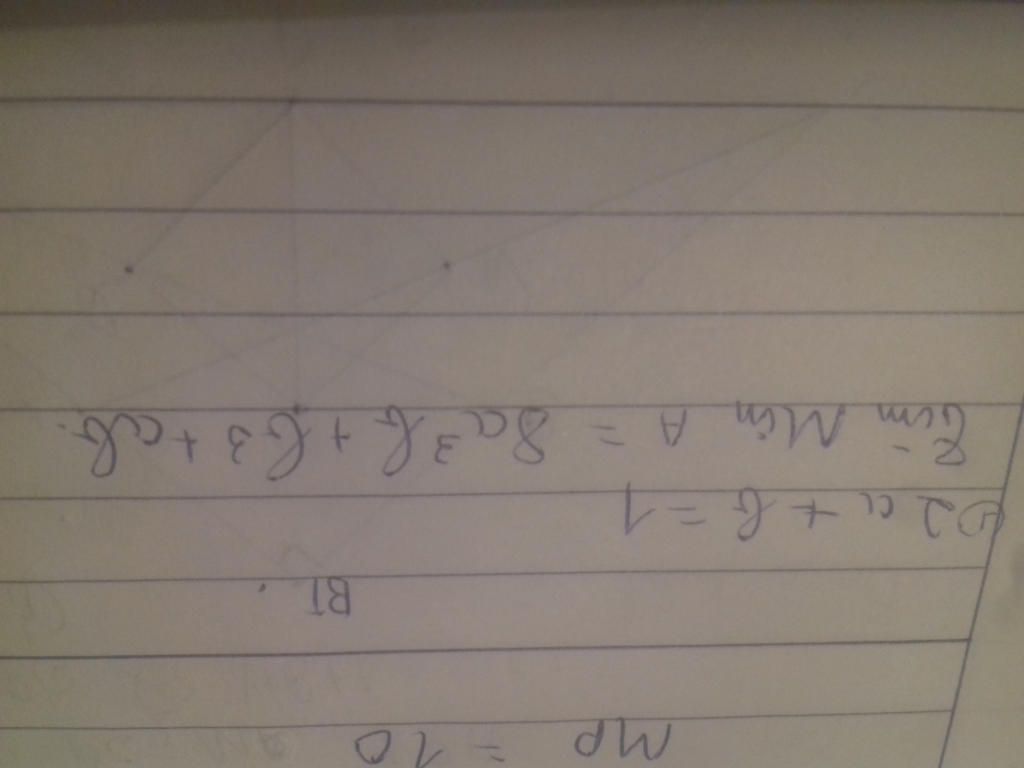 MP = 10
BT.
① 2a + b = 1
Tìm Min A = 8a³b + b³ + ab.